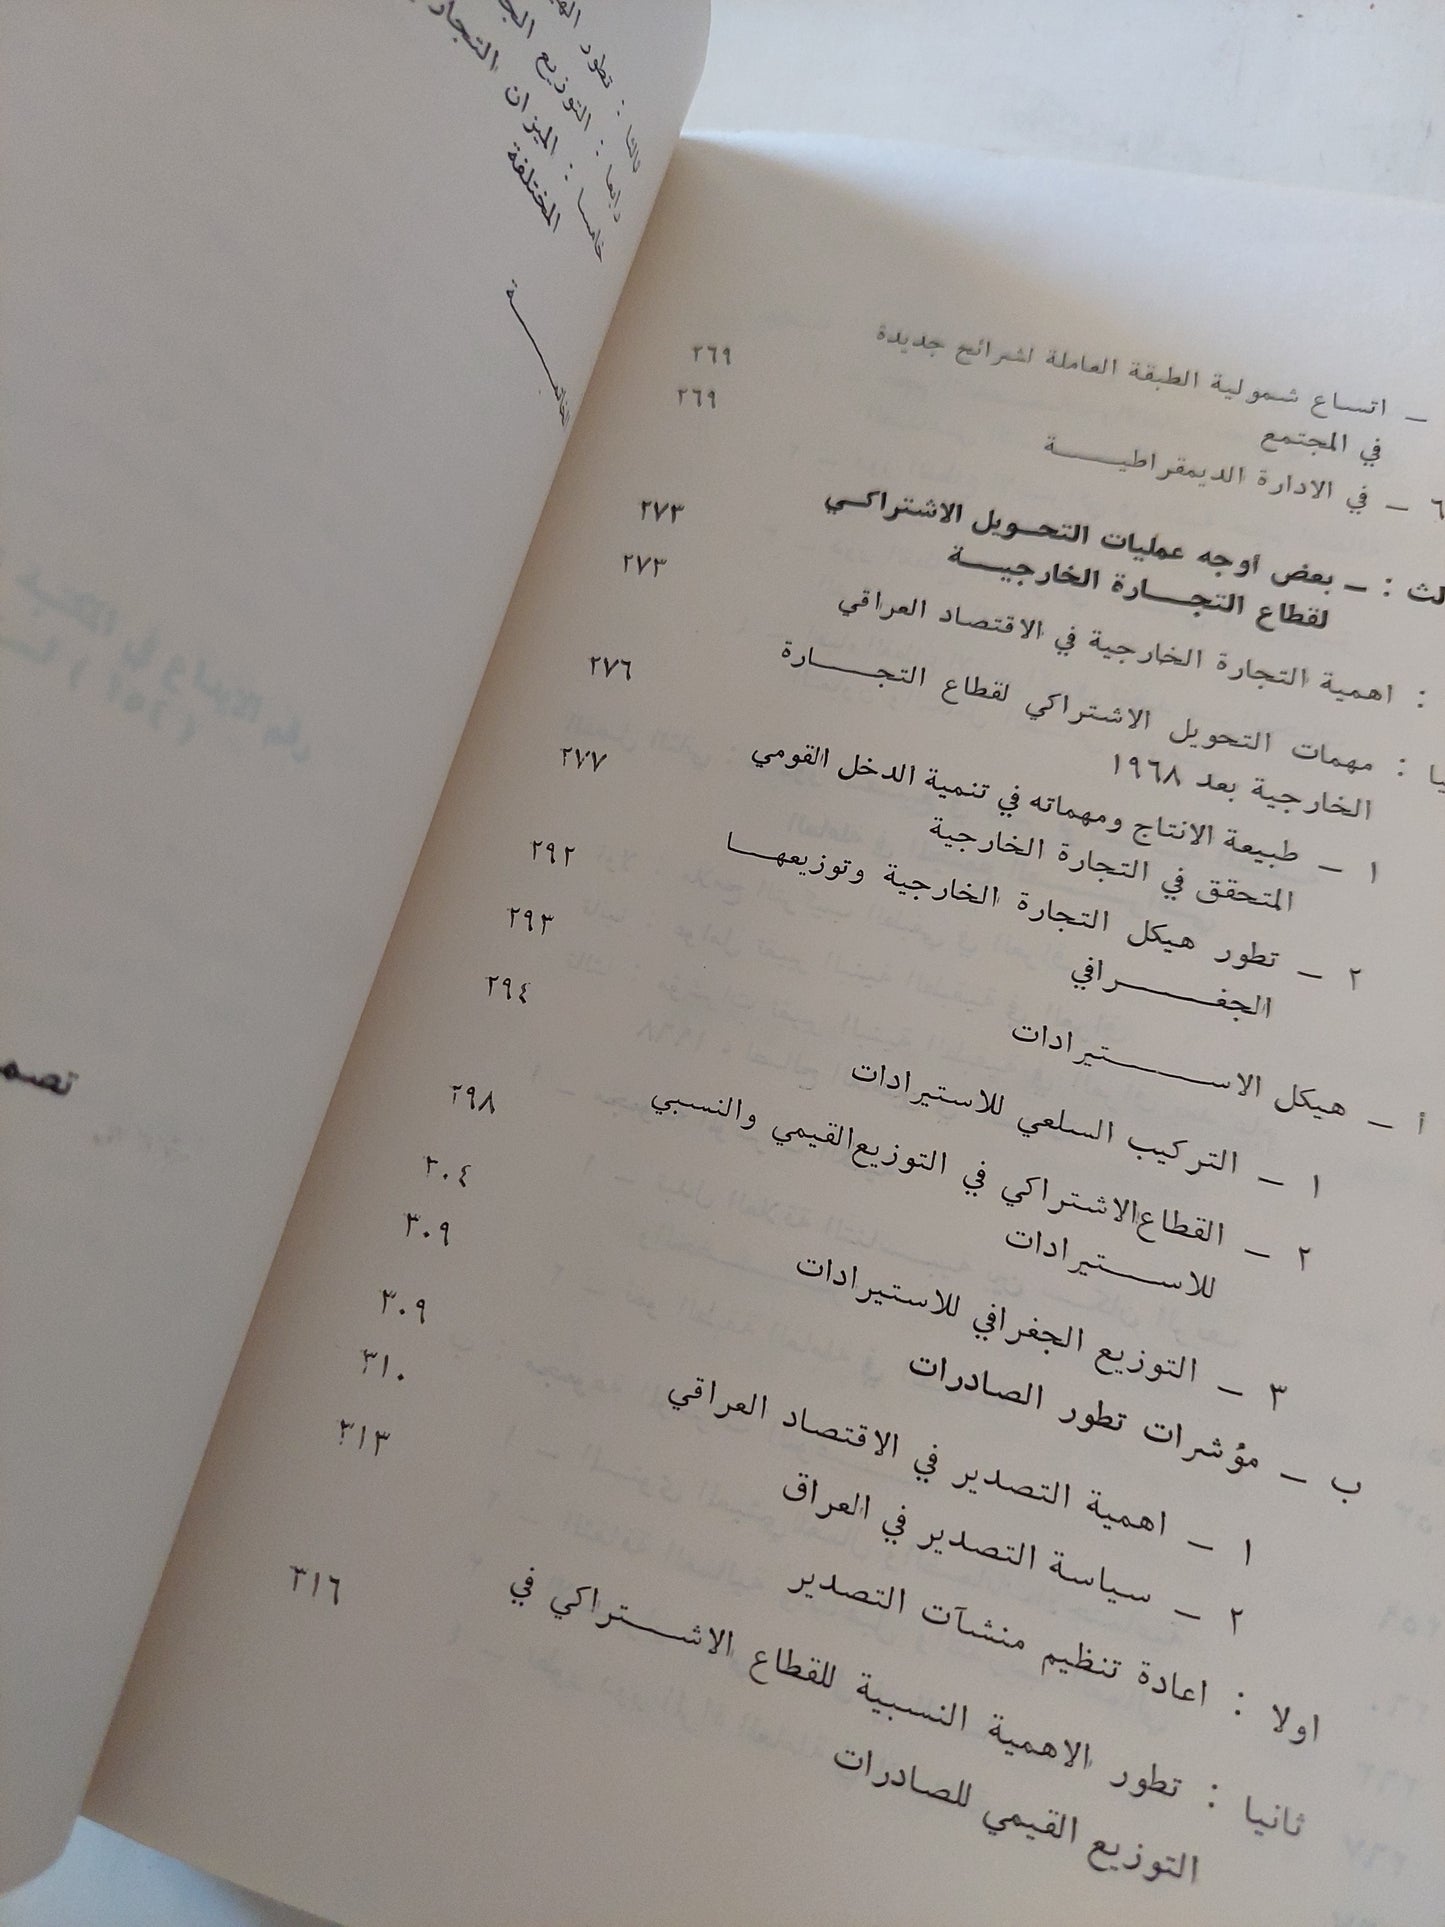 ـ اتساع شمولية الطبقة العاملة لشرائح جديدة
في المجتمع ٢٦٩
٦ ـ في الادارة الديمقراطيــــة ٢٦٩
لث : ـ بعض اوجه عمليات التحويل الاشتراكي
لقطاع التجـــارة الخارجيـــة ٢٧٣
: اهمية التجارة الخارجية في الاقتصاد العراقي ٢٧٣
يا : مهمات التحويل الاشتراكي لقطاع التجـــارة
الخارجية بعد ١٩٦٨ ٢٧٦
١ ـ طبيعة الانتاج ومهماته في تنمية الدخل القومي
المتحقق في التجارة الخارجية ٢٧٧
٢ ـ تطور هيكل التجارة الخارجية وتوزيعهـــا
الجغـــــرافي ٢٩٢
أ ـ هيكل الاســـــتيرادات ٢٩٣
١ ـ التركيب السلعي للاستيرادات ٢٩٤
٢ ـ القطاع الاشتراكي في التوزيع القيمي والنسبي
للاســـــتيرادات ٢٩٨
٣ ـ التوزيع الجغرافي للاستيرادات ٣٠٤
ب ـ مؤشرات تطور الصادرات ٣٠٩
١ ـ اهمية التصدير في الاقتصاد العراقي ٣٠٩
٢ ـ سياسة التصدير في العراق ٣١٠
اولا : اعادة تنظيم منشآت التصدير ٣١٣
ثانيا : تطور الاهمية النسبية للقطاع الاشـــتراكي في
التوزيع القيمي للصادرات ٣١٦
ثالثا : تطور
رابعا : التوزيع
خامسا : الميزان
المختلفة
تصم